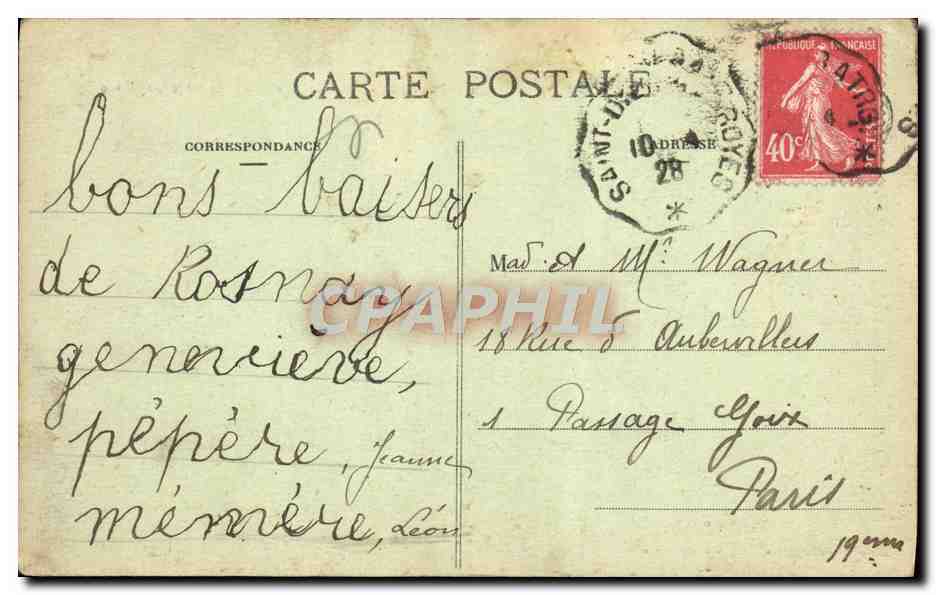 CARTE POSTALE
CORRESPONDANCE
ADRESSE
bons baisers
de Rosnay
geneviève,
pépère, Jeanne
mémère, Léon
SAINT-D
ROYES
10
28
REPUBLIQUE FRANCAISE
40c
Mad. et Mr. Wagner
18 Rue d Aubervilliers
1 Passage Goix
Paris
19eme
CPAPHIL